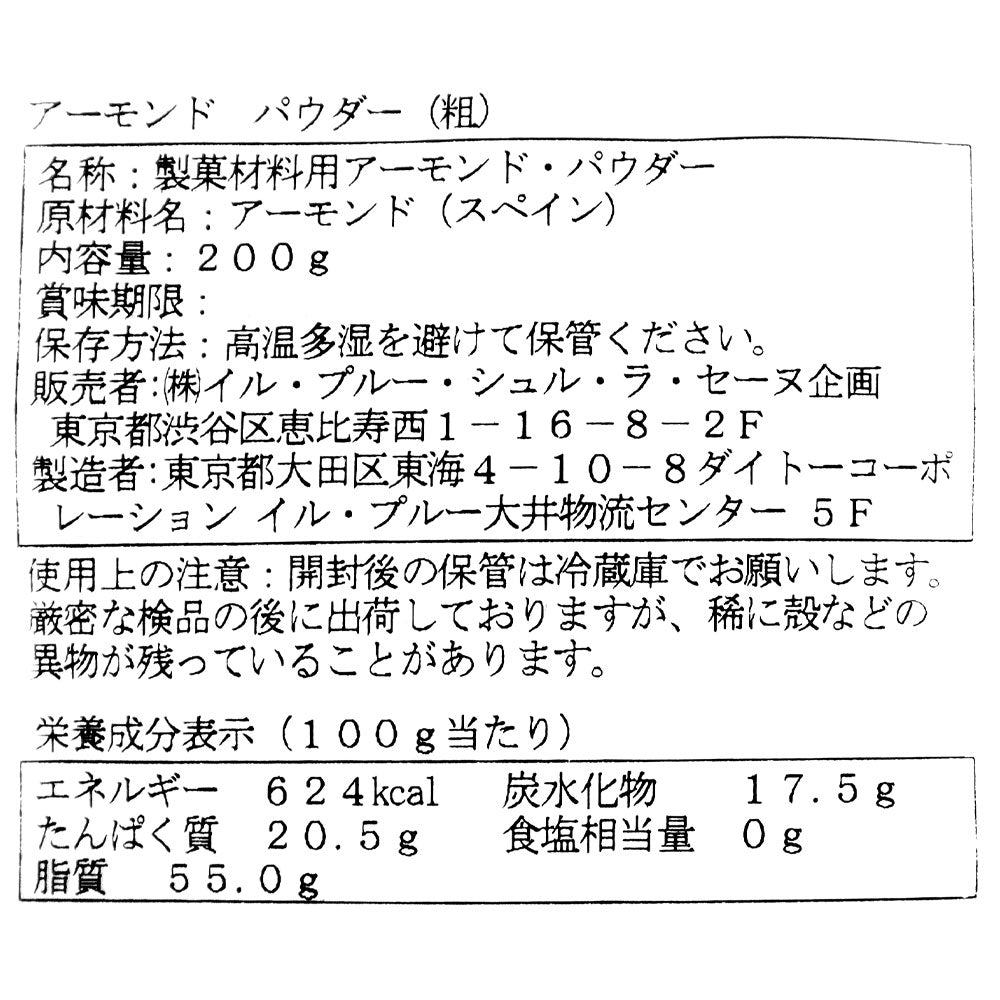 アーモンド　パウダー（粗）
名称：製菓材料用アーモンド・パウダー
原材料名：アーモンド（スペイン）
内容量：２００ｇ
賞味期限：
保存方法：高温多湿を避けて保管ください。
販売者:㈱イル・プルー・シュル・ラ・セーヌ企画
東京都渋谷区恵比寿西１－１６－８－２Ｆ
製造者:東京都大田区東海４－１０－８ダイトーコーポ
レーション イル・プルー大井物流センター ５Ｆ
使用上の注意：開封後の保管は冷蔵庫でお願いします。
厳密な検品の後に出荷しておりますが、稀に殻などの
異物が残っていることがあります。
栄養成分表示（１００ｇ当たり）
エネルギー　６２４kcal　炭水化物　１７.５ｇ
たんぱく質　２０.５ｇ　食塩相当量　０ｇ
脂質　５５.０ｇ